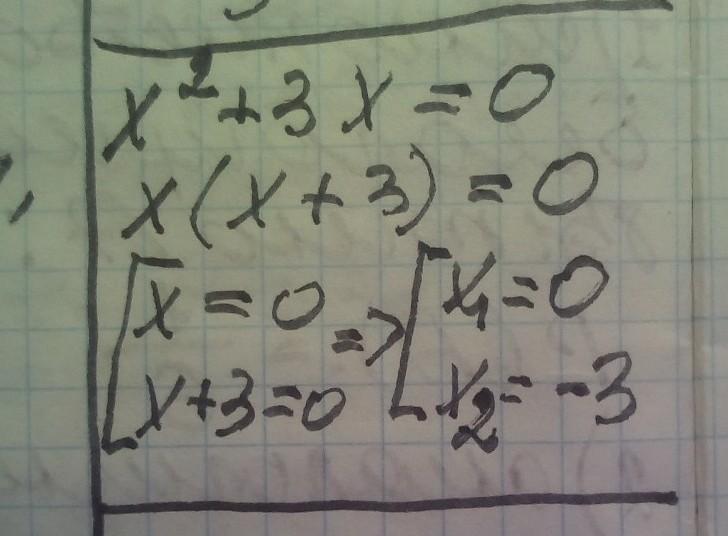 x²+3x=0
x(x+3)=0
[x=0 => [x₁=0
[x+3=0 [x₂=-3